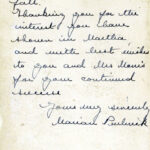 fall.
Thanking you for the
interest you have
shown in Martha
and with best wishes
to you and Mrs
for your continued
success
Yours very sincerely
Marian